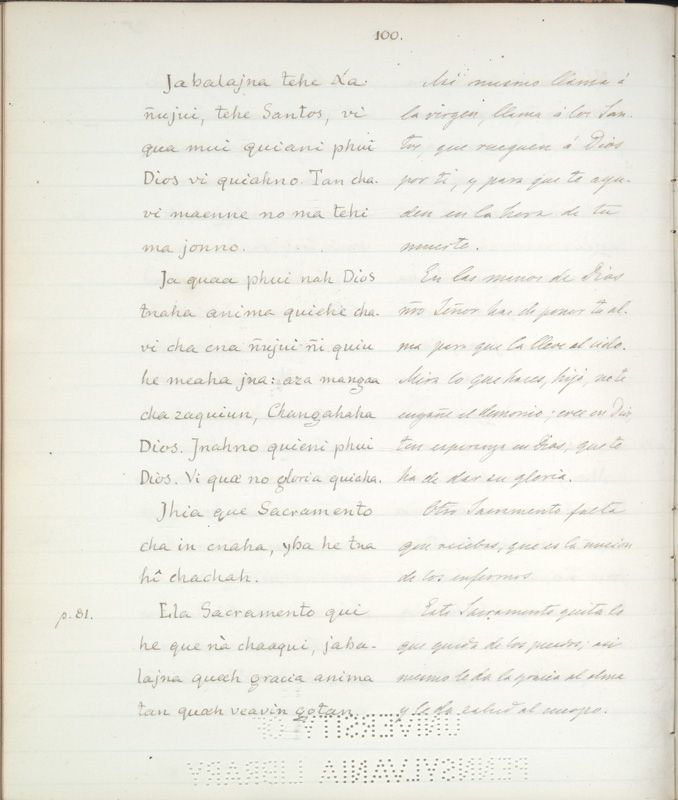 100.
Jabalajna tehe Xa.
ñujui, tehe Santos, vi
qua mui quiani phui
Dios vi quiahno. Tan cha.
vi maenne no ma tehi
ma jonno.
Ja quaa phui nah Dios
tnaha anima quiehe cha.
vi cha cna ñujui ñi quiu
he meaha jna: aza mangaa
cha zaquiun, Changahaha
Dios. Jnahno quieni phui
Dios. Vi quæ no gloria quicha.
Jhia que Sacramento
cha in cnaha, yba he tna
hî chachah.
p. 81.
Eila Sacramento qui
he que nà chaaqui, jaba-
lajna quæh gracia anima
tan quæh veavin gotan
Asi mismo llama á
la virgen, llama á los San-
tos, que rueguen á Dios
por ti, y para que te ayu-
den en la hora de tu
muerte.
En las manos de Dios
ñro Señor has de poner tu al.
ma para que la lleve al cielo.
Mira lo que haces, hijo, no te
engañe el demonio; cree en Dios,
ten esperanza en Dios, que te
ha de dar su gloria.
Otro Sacramento falta
que recibas, que es la uncion
de los enfermos.
Este Sacramento quita lo
que queda de los pecados; asi
mismo le da la gracia al alma
y le da salud al cuerpo.
UNIVERSITY OF
PENNSYLVANIA LIBRARY